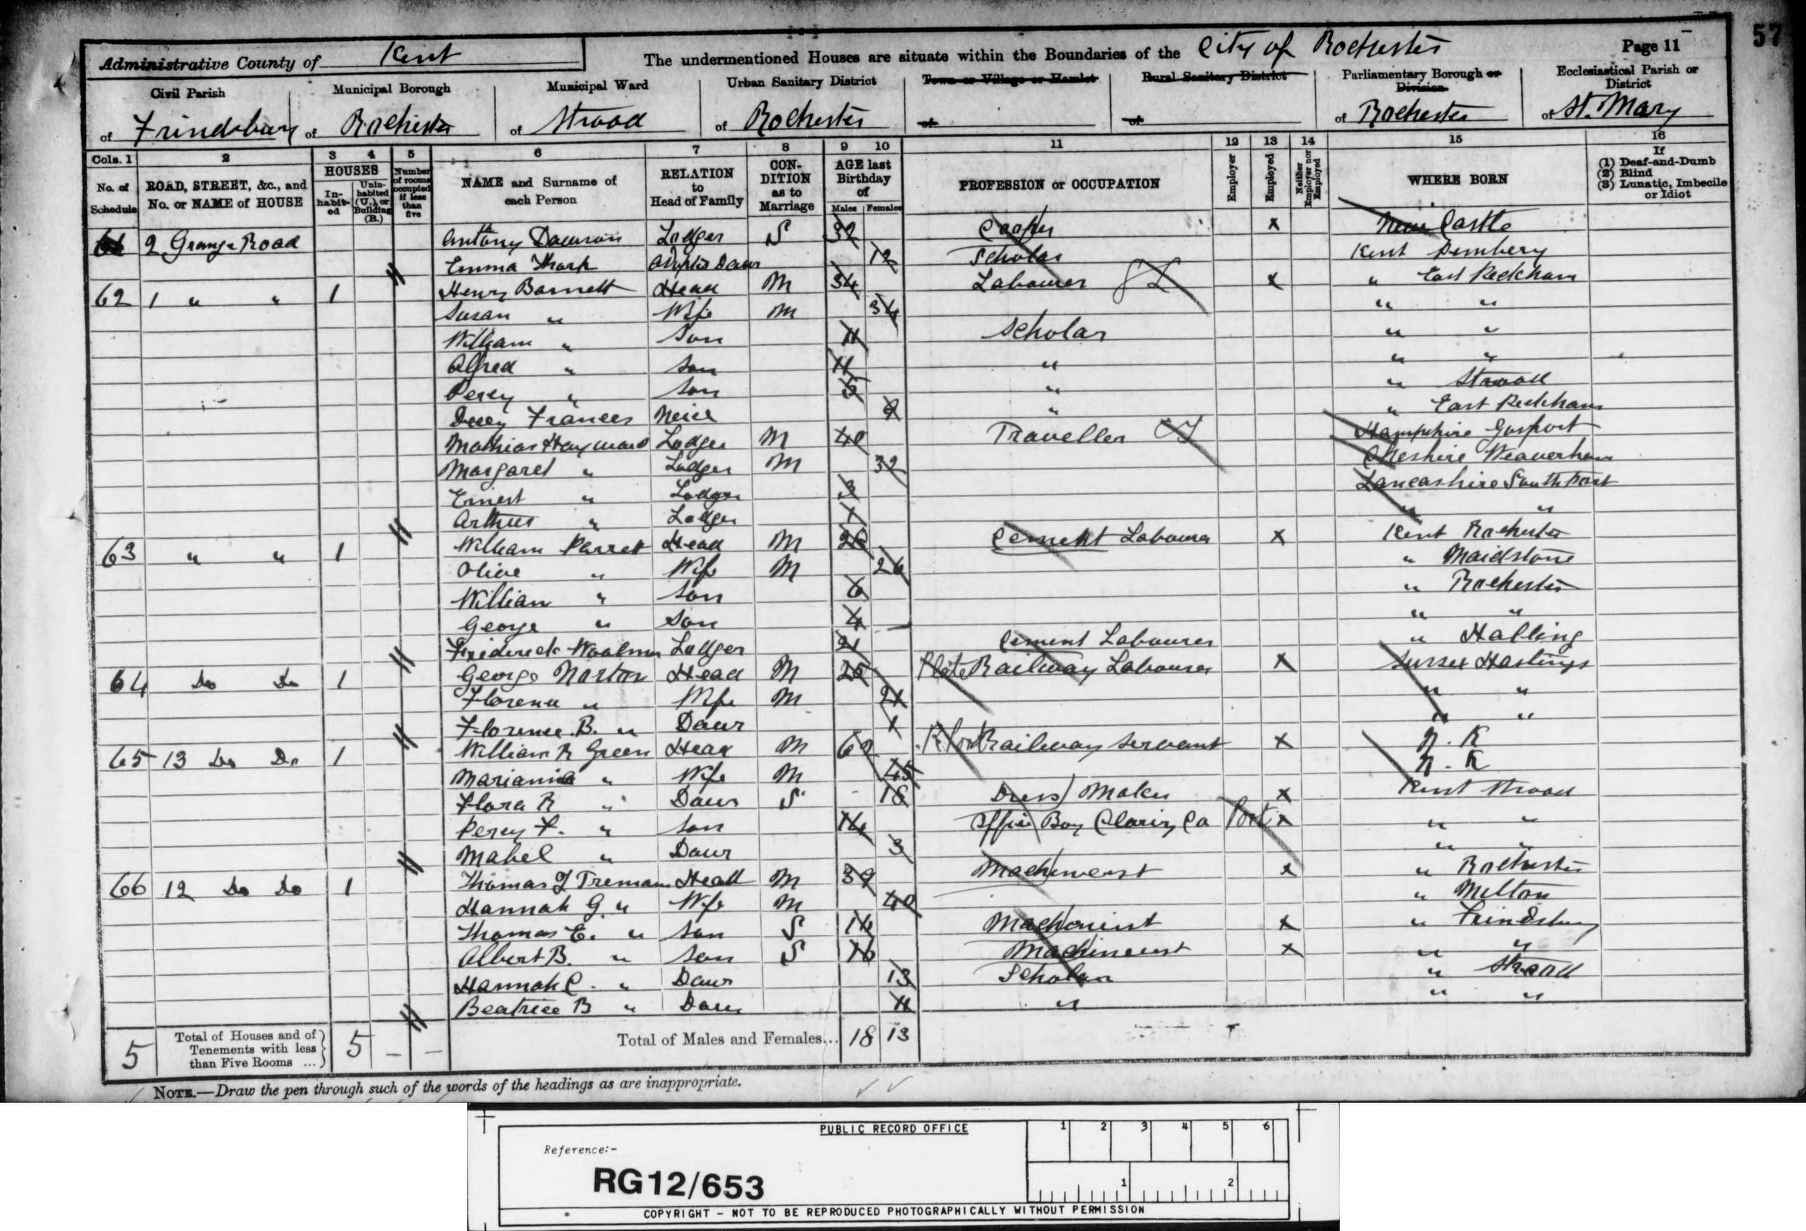 57
Administrative County of Kent The undermentioned Houses are situate within the Boundaries of the City of Rochester Page 11
Civil Parish Municipal Borough Municipal Ward Urban Sanitary District Town or Village or Hamlet Rural Sanitary District Parliamentary Borough or Division Ecclesiastical Parish or District
of Frindsbury of Rochester of Strood of Rochester of of of Rochester of St. Mary
Cols. 1 2 3 4 5 6 7 8 9 10 11 12 13 14 15 16
No. of Schedule ROAD, STREET, &c., and No. or NAME of HOUSE HOUSES In-habit-ed Unin-habited (U.) or Building (B.) Number of rooms occupied if less than five NAME and Surname of each Person RELATION to Head of Family CON-DITION as to Marriage AGE last Birthday of Males Females PROFESSION or OCCUPATION Employer Employed Neither Employer nor Employed WHERE BORN If (1) Deaf-and-Dumb (2) Blind (3) Lunatic, Imbecile or Idiot
61 2 Grange Road Antony Dawson Lodger S 32 x New Castle
Emma Daur 12 Scholar Kent
62 1 " " 1 Henry Barnett Head M 34 Labourer x " East Peckham
Susan " Wife M 34 " "
William " Son 11 Scholar " "
Alfred " Son 11 " " "
Percy " Son 5 " " Strood
Frances Neice " " East Peckham
Mathias Hayward Lodger M 40 Traveller Hampshire Gosport
Margaret " Lodger M 32 Cheshire Weaverham
Ernest " Lodger 3 Lancashire Southport
Arthur " Lodger 1 " "
63 " " 1 William Parrett Head M 26 Cement Labourer x Kent Rochester
Olive " Wife M 26 " Maidstone
William " Son 6 " Rochester
George " Son 4 " "
Frederick Lodger 21 Cement Labourer " Halling
64 Do Do 1 George Norton Head M 25 Plate Railway Labourer x Sussex Hastings
Florence " Wife M 21 " "
Florence B. " Daur 1 " "
65 13 Do Do 1 William R Green Head M 62 Railway Servant x N. K
" Wife M 45 N. K
Flora R " Daur S 18 Dress Maker x Kent Strood
Percy F. " Son 14 Office Boy Co x " "
Mabel " Daur 3 " "
66 12 Do Do 1 Thomas Head M 39 Machineist x " Rochester
Hannah G. " Wife M 40 " Milton
Thomas E. " Son S 16 Machineist x " Frindsbury
Albert B. " Son S 16 Machineist x " "
Hannah C. " Daur 13 Scholar " Strood
Beatrice B " Daur 11 " " "
5 Total of Houses and of Tenements with less than Five Rooms ... 5 – – Total of Males and Females... 18 13
NOTE.—Draw the pen through such of the words of the headings as are inappropriate.
PUBLIC RECORD OFFICE 1 2 3 4 5 6
Reference:-
RG 12/653 1 2
COPYRIGHT - NOT TO BE REPRODUCED PHOTOGRAPHICALLY WITHOUT PERMISSION